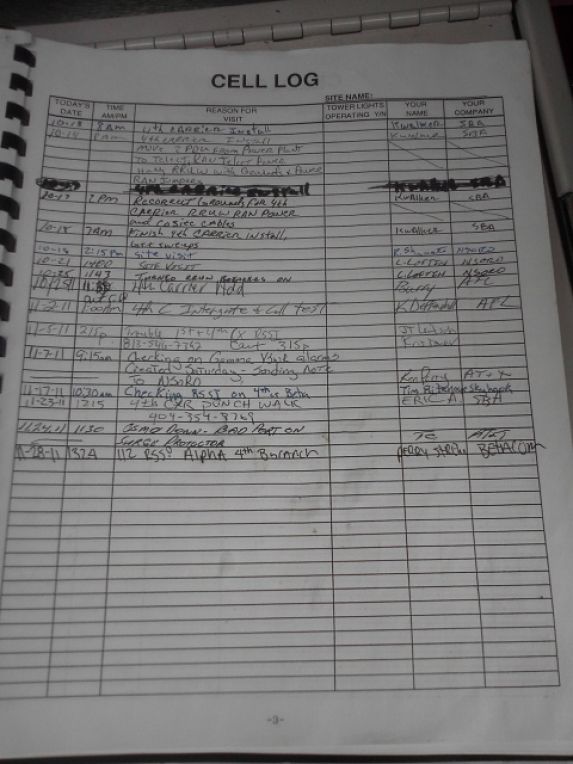 CELL LOG
SITE NAME:
TODAY'S DATE TIME AM/PM REASON FOR VISIT TOWER LIGHTS OPERATING Y/N YOUR NAME YOUR COMPANY
10-13 8am 4th CARRIER Install Kwalker SBA
10-14 8am 4th CARRIER Install Kwalker SBA
Move 2 PDU From Power Plant
To Telect, RAN Telect Power
Hang RRUW with Grounds & Power
RAN Jumpers
10-17 2PM RECORRECT Grounds FOR 4th Kwalker SBA
CARRIER RRUW RAN POWER
and COSITE CABLES
10-18 7AM FINISH 4th CARRIER INSTALL, Kwalker SBA
sweeps
10-18 2:15pm site visit NSORO
10-21 1400 SITE VISIT L. LOFTEN NSORO
10-25 1143 TURNED RRUW BREAKERS ON L. LOFTEN NSORO
4th Carrier Add Barry AFL
11-2-11 1:00Am 4th C Integrate & Call test AFL
11-5-11 215p Trouble 1st + 4th CX RSSI
813-546-7742 out 315p
11-7-11 9:15am Checking on Gamma VSWR alarms
Created Saturday - Sending Note
TO NSORO Ken Perry AT&T
11-17-11 10:30am Checking RSSI on 4th cr Beta Tim
11-23-11 1215 4th CXR PUNCH WALK ERIC A. SBA
404-354-8769
11.24.11 1130 DOWN - BAD PORT ON
SURGE PROTECTOR TC AT&T
11-28-11 132A 112 RSSI Alpha 4th Branch PERRY BETACOM
-3-